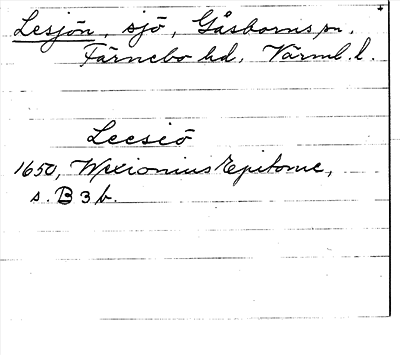 Lesjön, sjö, Gåsborns sn.
Färnebo hd, Värml. l.
Leesiö
1650, Wexionius Epitome,
s. B 3 b.